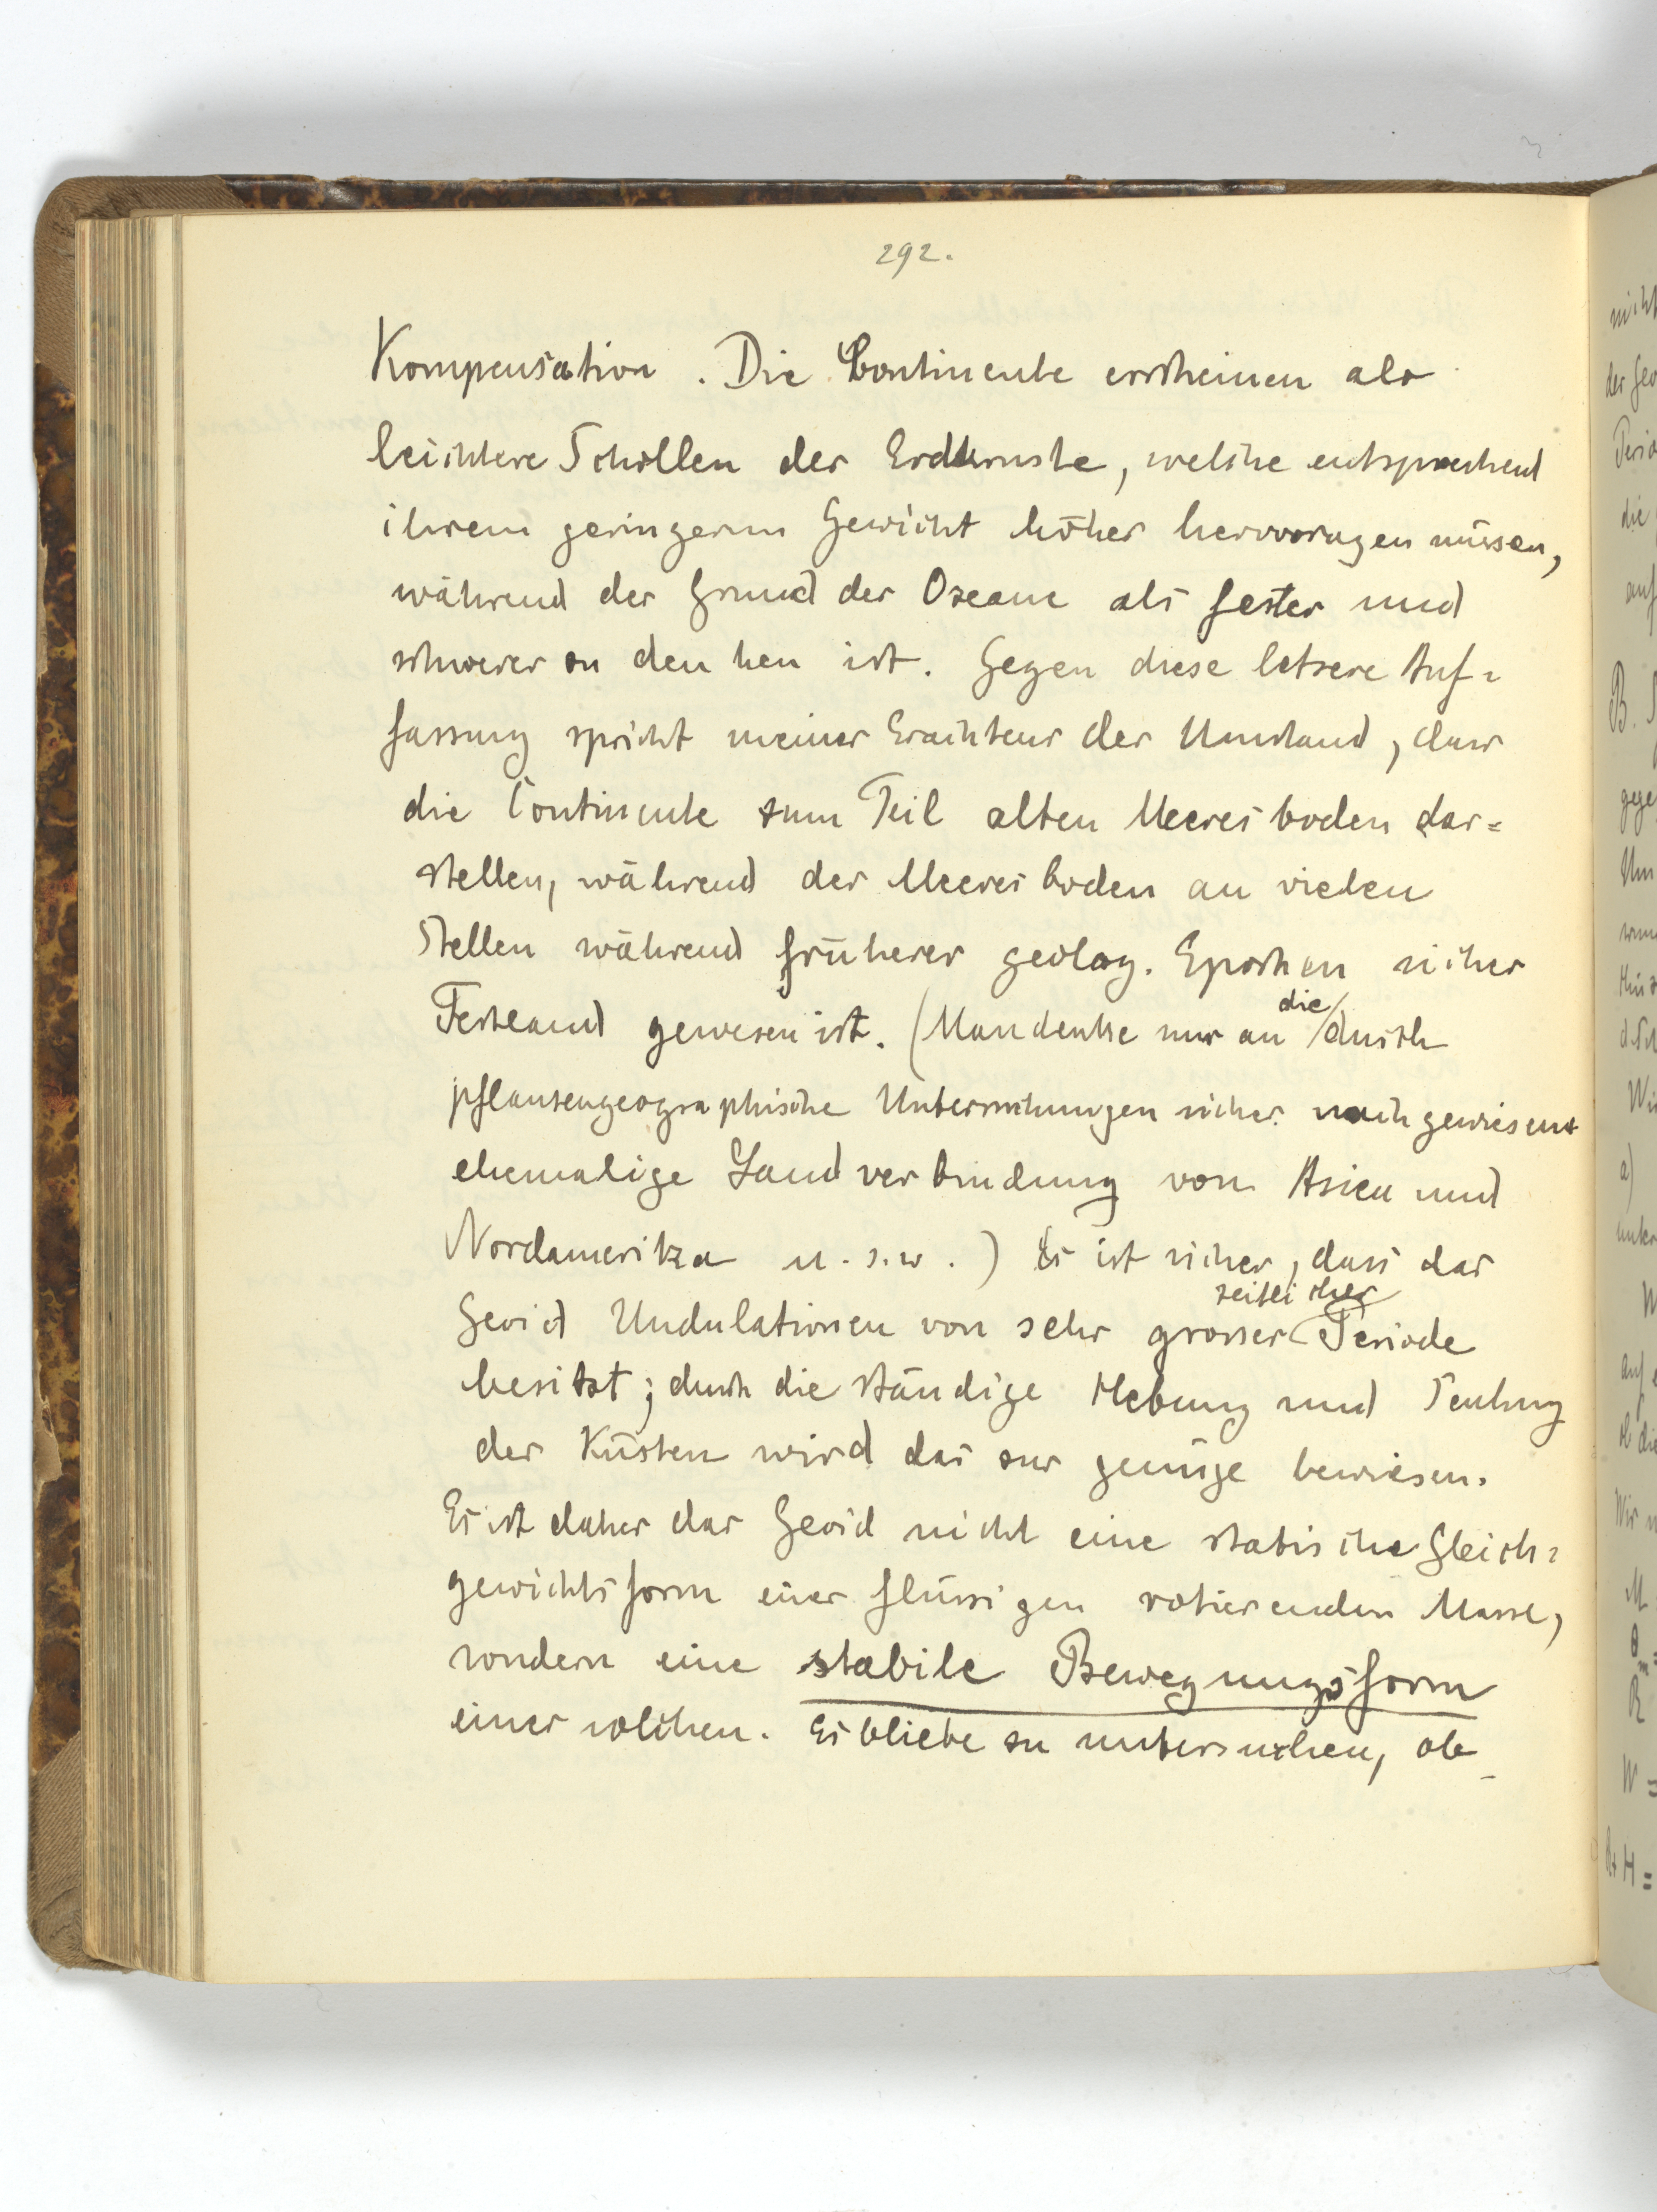 292.
Kompensation. Die Continente erscheinen als
leichtere Schollen der Erdkruste, welche entsprechend
ihrem geringern Gewicht höher hervorragen müssen,
während der Grund der Ozeane als fester und
schwerer zu denken ist. Gegen diese letzere Auf=
fassung spricht meines Erachtens der Umstand, dass
die Continente zum Teil alten Meeresboden dar=
stellen, während der Meeresboden an vielen
Stellen während früherer geolog. Epochen sicher
Festland gewesen ist. (Man denke nur an die durch
pflanzengeographische Untersuchungen sicher nachgewiesene
ehemalige Landverbindung von Asien und
Nordamerika u.s.w.) Es ist sicher, dass das
Geoid Undulationen von sehr grosser zeitlicher Periode
besitzt; durch die ständige Hebung und Senkung
der Küsten wird das zur genüge bewiesen.
Es ist daher das Geoid nicht eine statische Gleich=
gewichtsform einer flüssigen rotierenden Masse,
sondern eine stabile Bewegungsform
einer solchen. Es bliebe zu untersuchen, ob